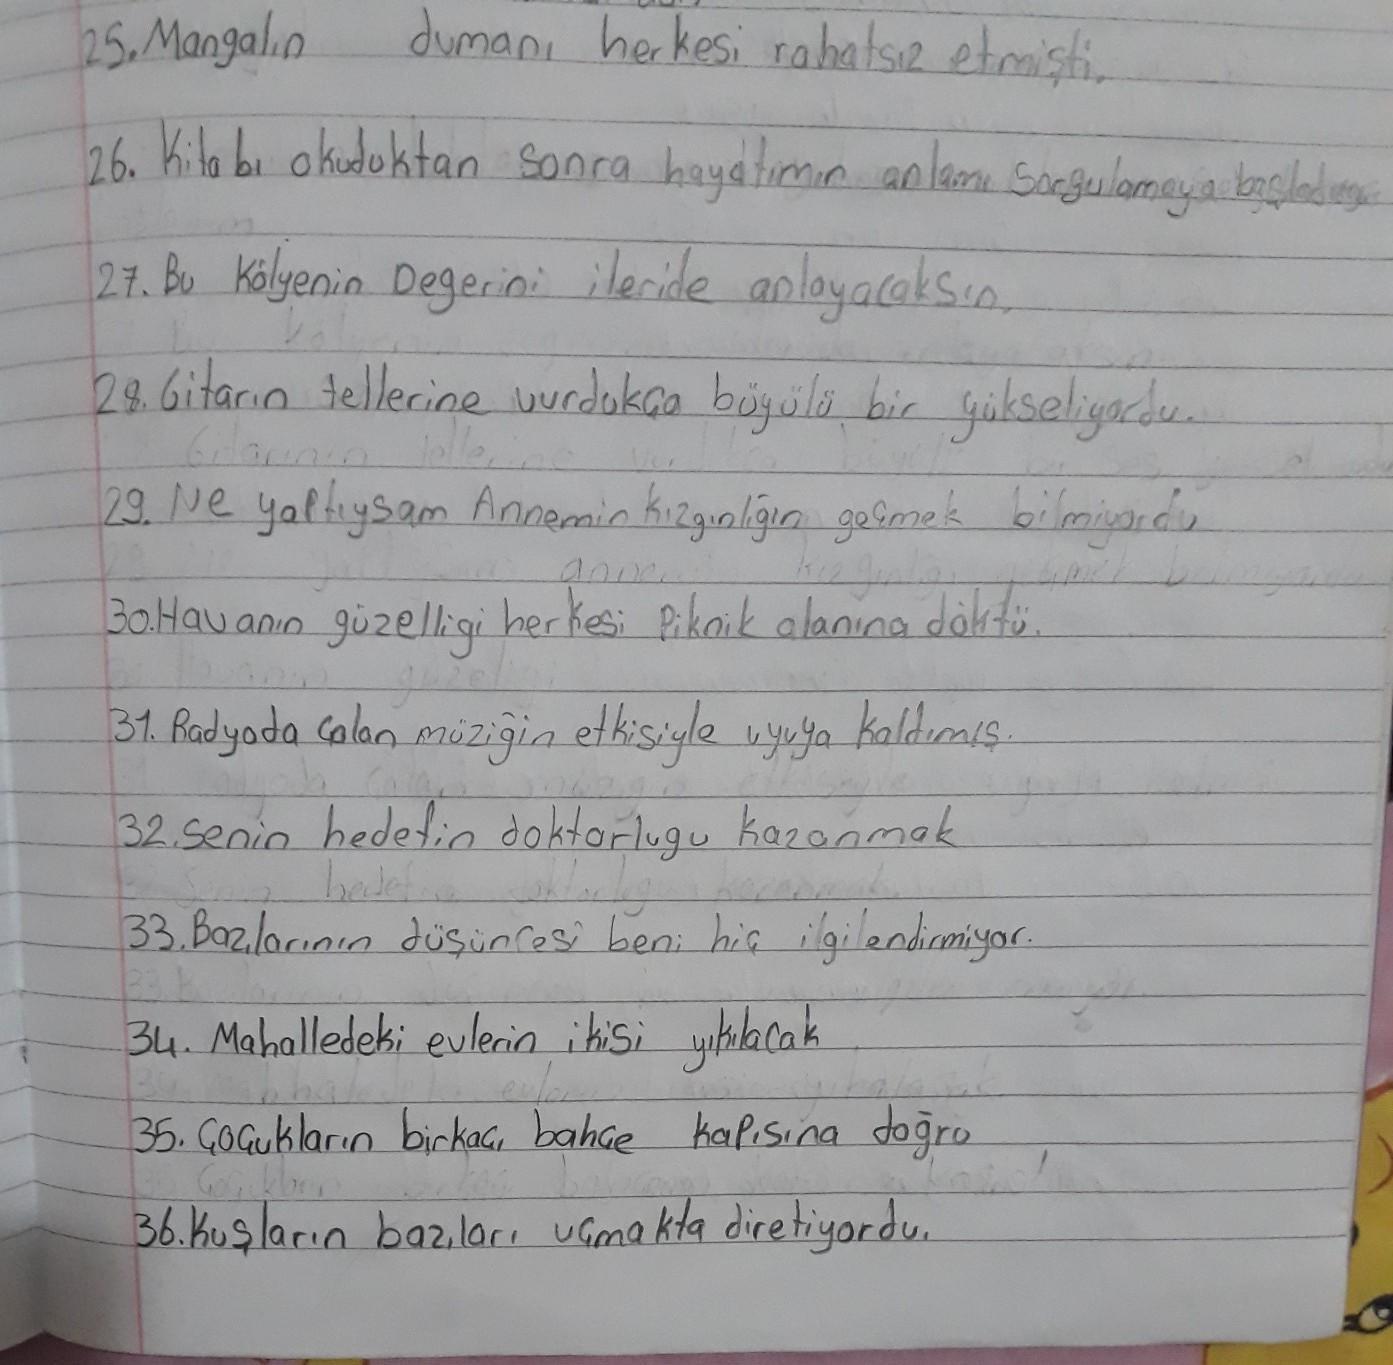 25. Mangalın dumanı herkesi rahatsız etmişti.
26. Kitabı okuduktan sonra hayatımın anlamı Sorgulamaya başladım
27. Bu Kölyenin Degerini ileride anlayacaksın.
28. Gitarın tellerine vurdukça büyülü bir yükseliyordu.
29. Ne yaptıysam Annemin kızgınlığın geçmek bilmiyordu
30. Havanın güzelligi herkesi Piknik alanına döktü.
31. Radyoda çalan müziğin etkisiyle uyuya kaldımış.
32. senin hedefin doktorlugu kazanmak
33. Bazılarının düşüncesi beni hiç ilgilendirmiyor.
34. Mahalledeki evlerin ikisi yıkılacak
35. Çocukların birkaçı bahçe kapısına doğru
36. Kuşların bazıları uçmakta diretiyordu.